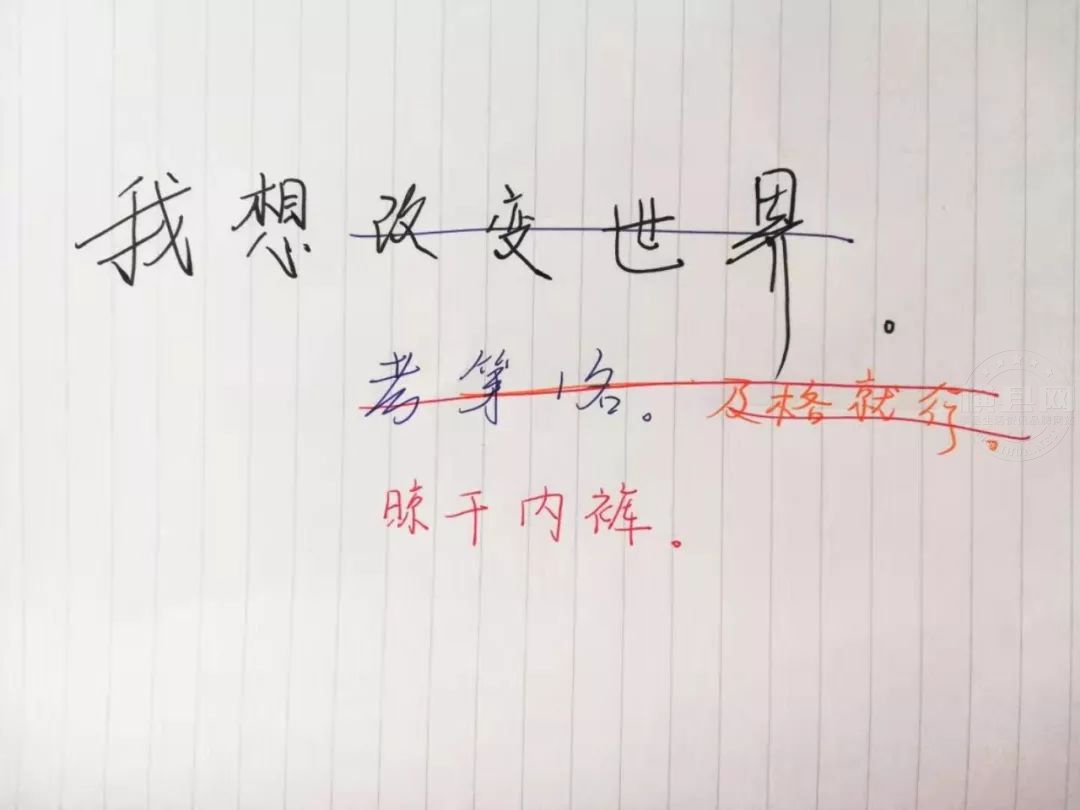 我想改变世界。
考第1名。及格就行。
晾干内裤。